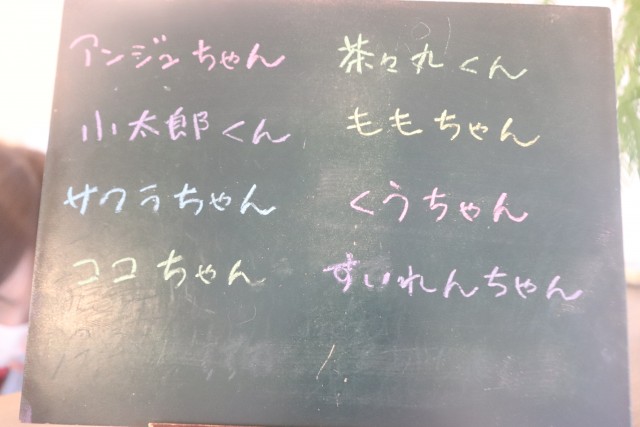 アンジュちゃん
小太郎くん
サクラちゃん
ココちゃん
茶々丸くん
ももちゃん
くうちゃん
すいれんちゃん